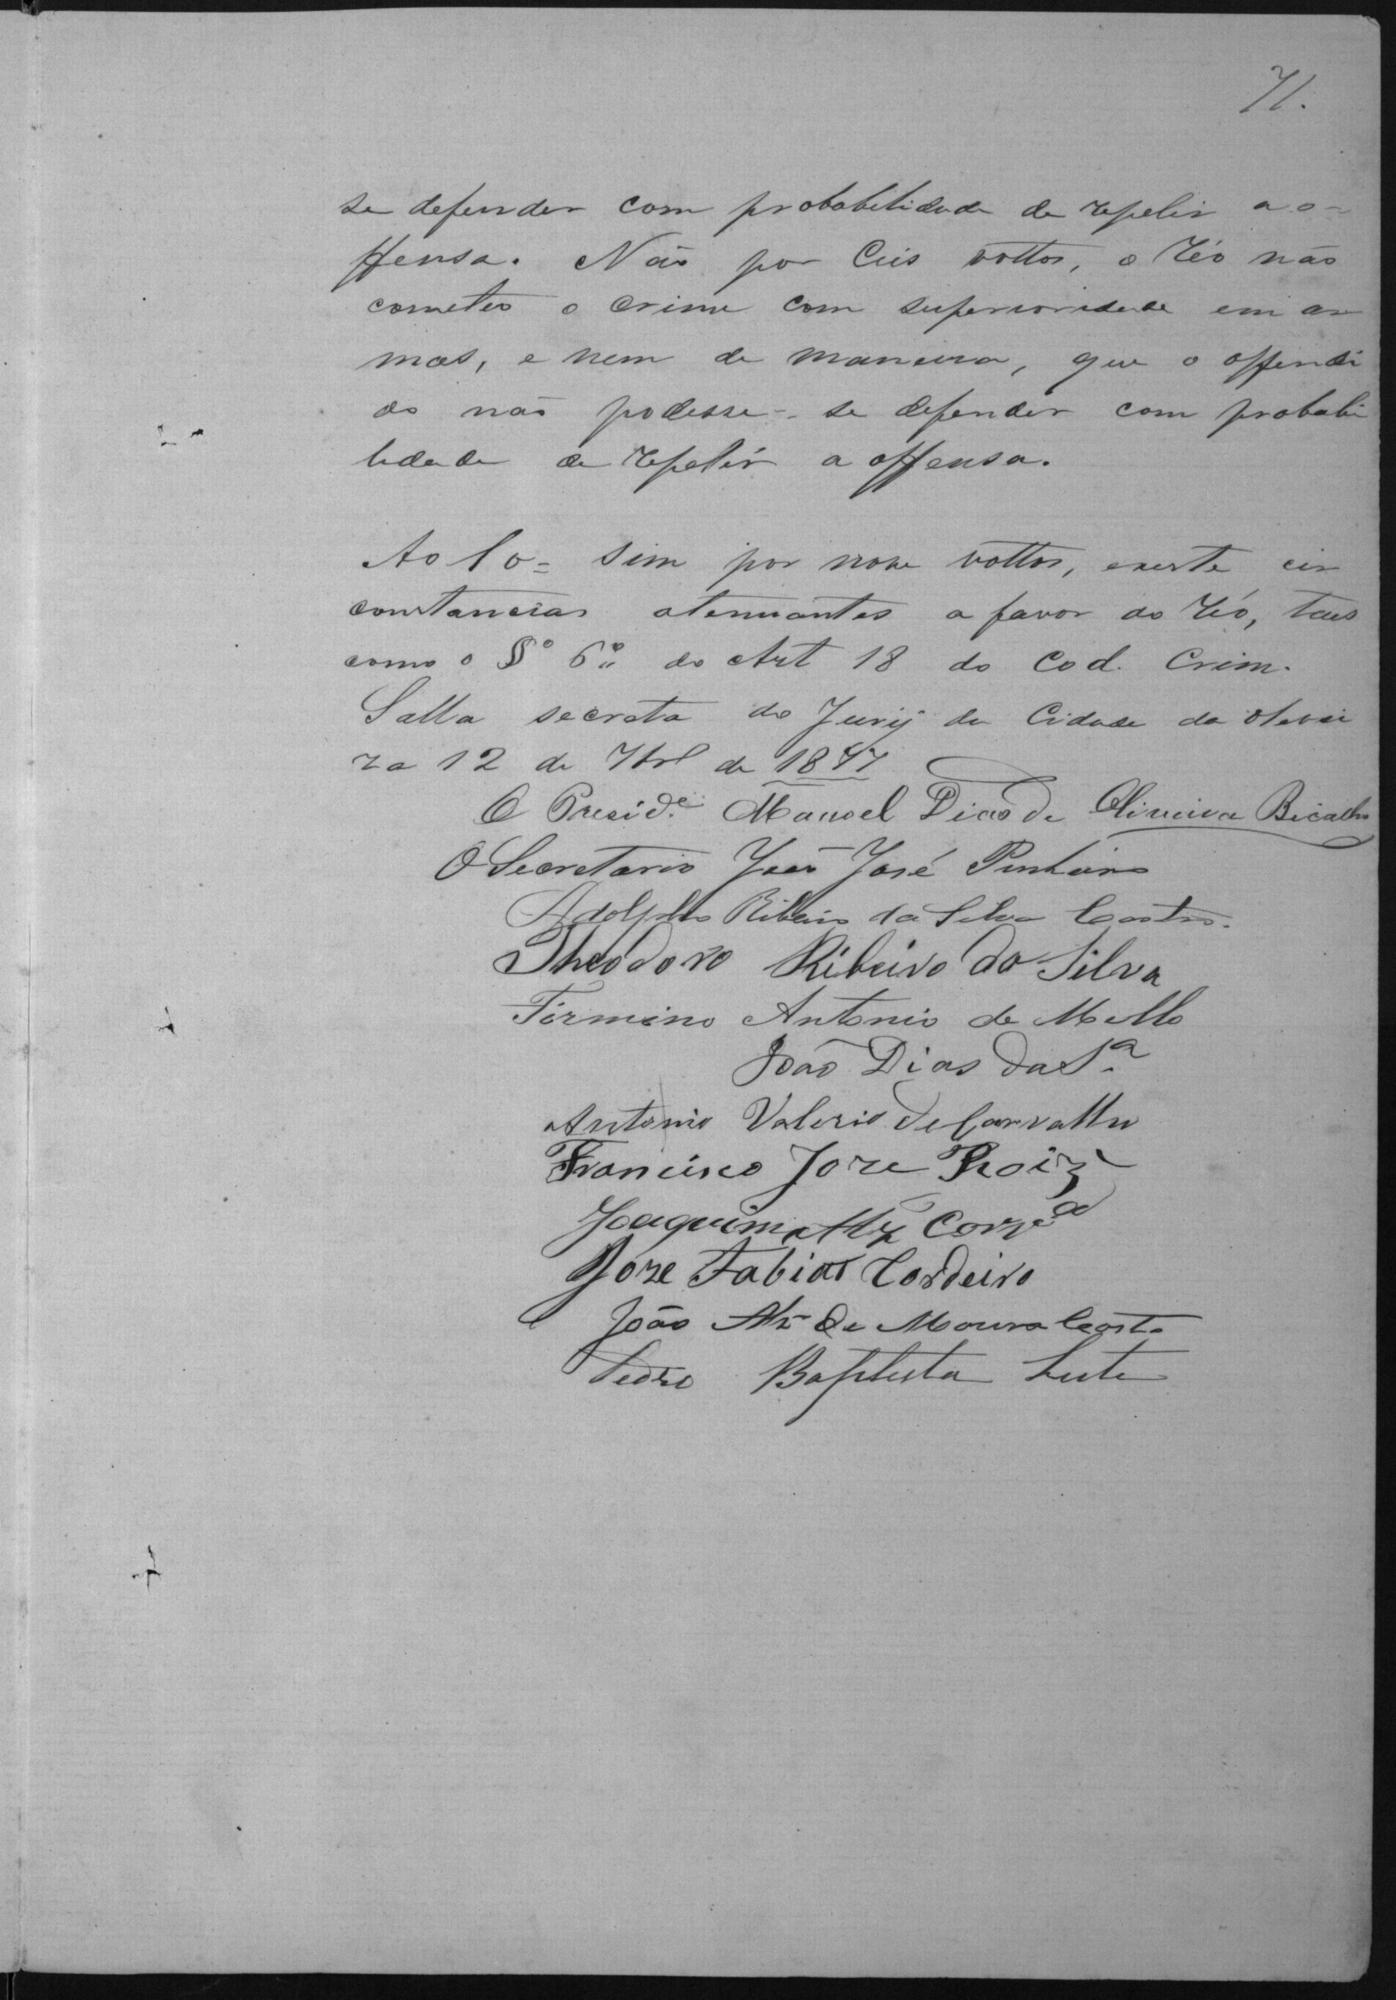 71.
se defender com probabelidade de repelir a o-
ffensa. Não por Ceis vottos, o Réo não
cometeo o crime com superioridade em ar
mas, e nem de maneira, que o offendi
do não podesse-se defender com probabi
lidade de repelir a offensa.
Ao 10= Sim por nove vottos, exeste cir
constancias atenuantes a favor do Réo, taes
como o §º 6º do Art 18 do Cod. Crim.
Salla secreta do Jury da Cidade da Olivei
ra 12 de 7brº de 1877
O Presidᵉ Manoel Dias de Oliveira Bicalho
O Secretario João José Pinheiro
Adolpho Ribeiro da Silva Castro.
Theodoro Ribeiro da Silva
Firmino Antonio de Mello
João Dias da Sª
Antonio Valerio de Carvalho
Francisco Joze Roiz
Joaquim Corrª
Joze Fabiao Cordeiro
João Alz de Moura Costa
Pedro Baptista Leite